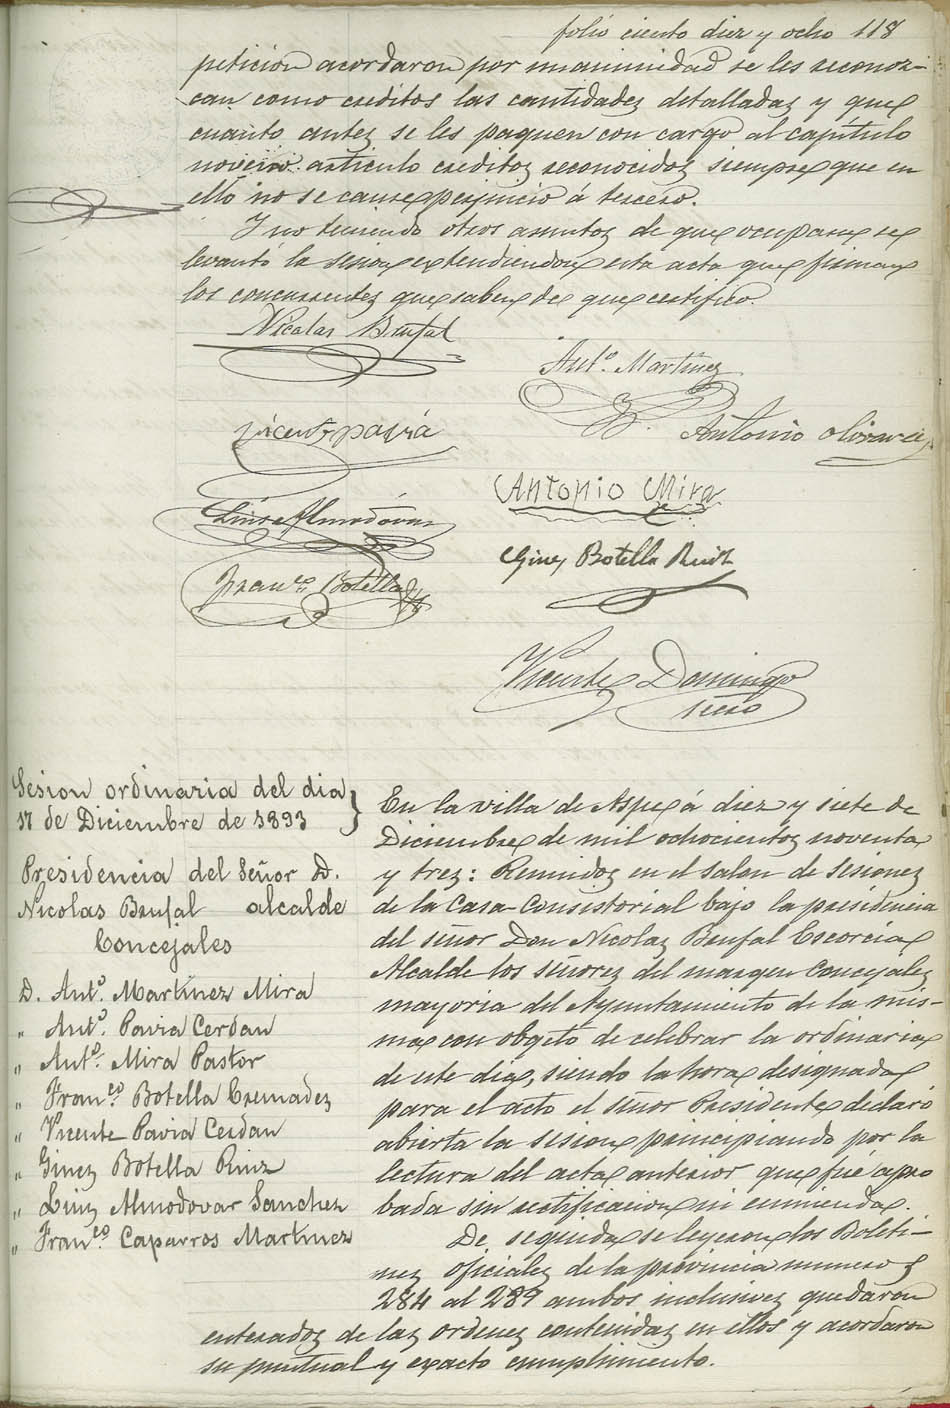 folio ciento diez y ocho 118
peticion acordaron por unanimidad se les reconoz-
can como creditos las cantidades detalladas y que
cuanto antes se les paguen con cargo al capítulo
noveno articulo creditos reconocidos siempre que en
ello no se cause perjuicio á tercero.
Y no teniendo otros asuntos de que ocuparse se
levantó la sesion extendiendose esta acta que firman
los concurrentes que saben de que certifico.
Nicolas Brufal
Antº. Martinez
Vicente pavia
Antonio Olivares
Antonio Mira
Luis Almodóvar
Gines Botella Ruiz
Franco. Botella
Vicente Domingo
srio
Sesion ordinaria del dia
17 de Diciembre de 1893
Presidencia del Señor D.
Nicolas Brufal alcalde
Concejales
D. Antº. Martinez Mira
" Antº. Pavia Cerdan
" Antº. Mira Pastor
" Franco. Botella Cremades
" Vicente Pavia Cerdan
" Gines Botella Ruiz
" Luis Almodovar Sanchez
" Franco. Caparros Martinez
En la villa de Aspe á diez y siete de
Diciembre de mil ochocientos noventa
y tres: Reunidos en el salon de sesiones
de la Casa-Consistorial bajo la presidencia
del señor Don Nicolas Brufal Escorcia
Alcalde los señores del margen Concejales
mayoria del Ayuntamiento de la mis-
ma con obgeto de celebrar la ordinaria
de este dia, siendo la hora designada
para el acto el señor Presidente declaró
abierta la sesion principiando por la
lectura del acta anterior que fué apro
bada sin rectificacion ni enmienda.
De seguida se leyeron los Boleti-
nes oficiales de la provincia numeros
284 al 289 ambos inclusives quedaron
enterados de las ordenes contenidas en ellos y acordaron
su puntual y exacto cumplimiento.